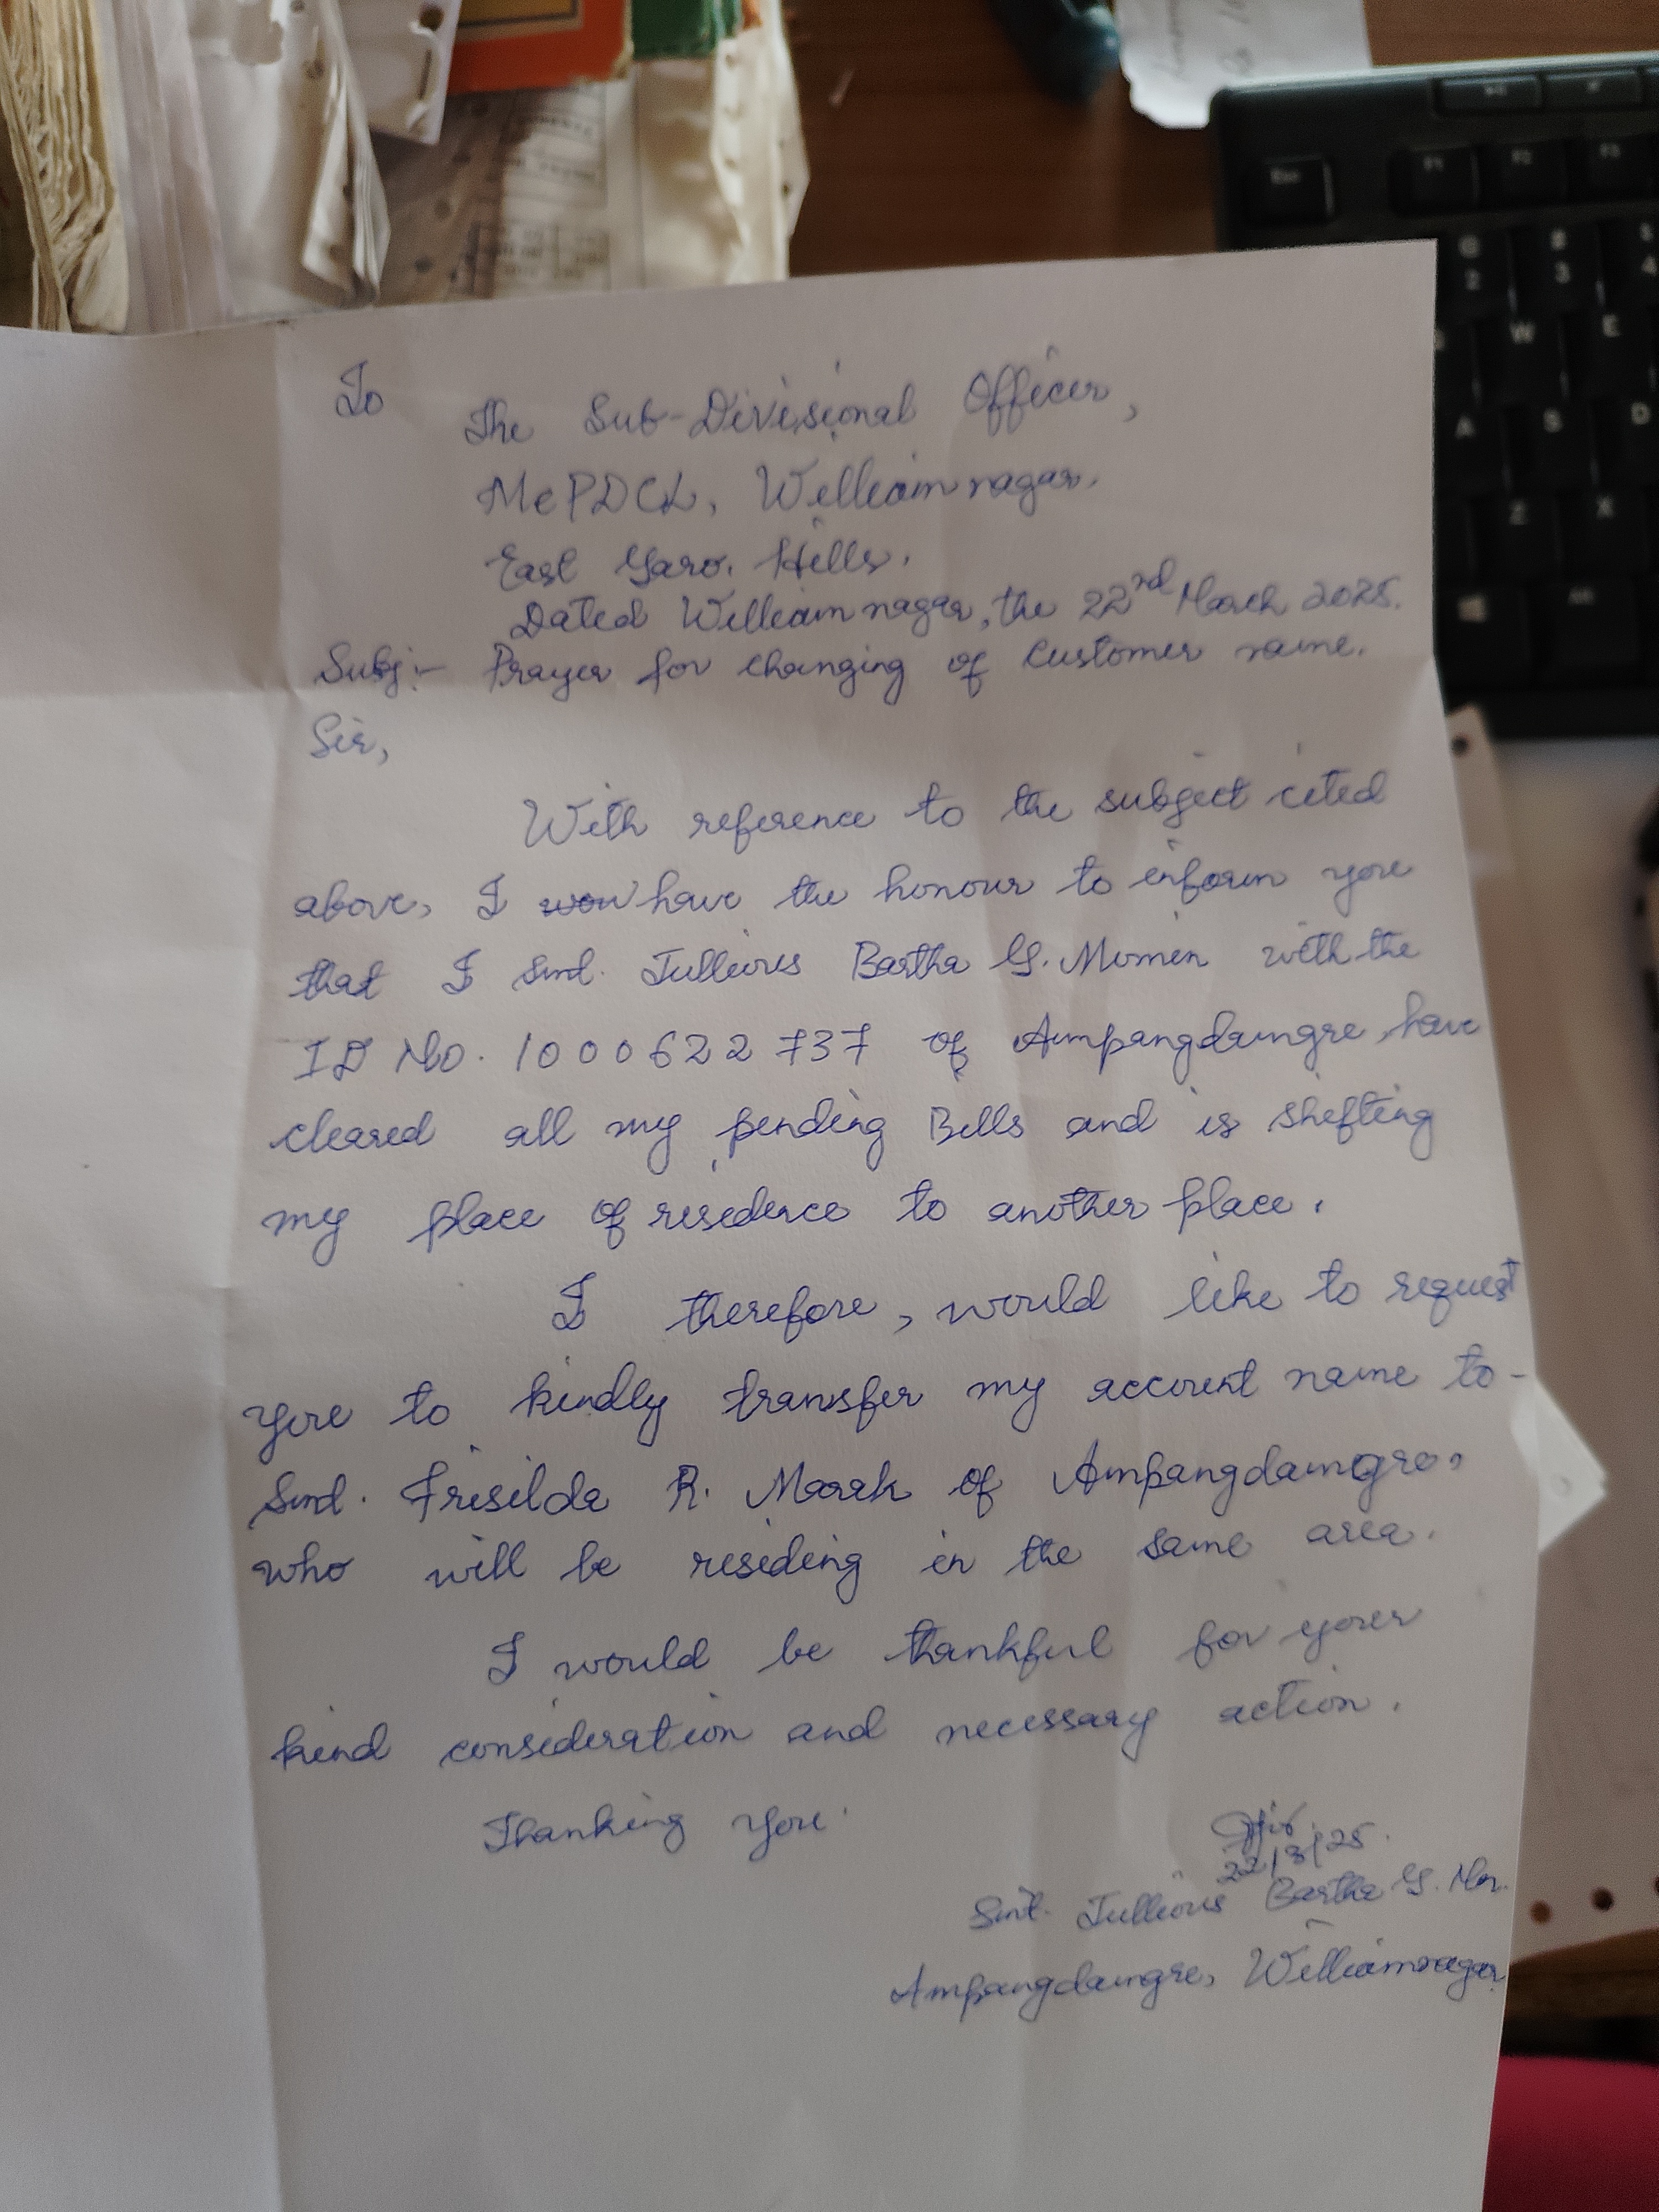 To
The Sub-Divisional Officer,
MePDCL, Williamnagar.
East Garo. Hills.
Dated Williamnagar, the 22nd March 2025.
Subj:- Prayer for changing of Customer name.
Sir,
With reference to the subject cited
above, I have the honour to inform you
that I Smt. Jullious Bartha G. Momin with the
ID No. 1000622737 of Ampangdamgre, have
cleared all my pending Bills and is shifting
my place of residence to another place.
I therefore, would like to request
you to kindly transfer my account name to-
Smt. Frisilda R. Marak of Ampangdamgre,
who will be residing in the same area.
I would be thankful for your
kind consideration and necessary action.
Thanking you.
22/3/25.
Smt. Jullious Bartha G.
Ampangdamgre, Williamnagar
Esc F1 F2 F3
2 3 4
W E
A S D
Z X
Alt